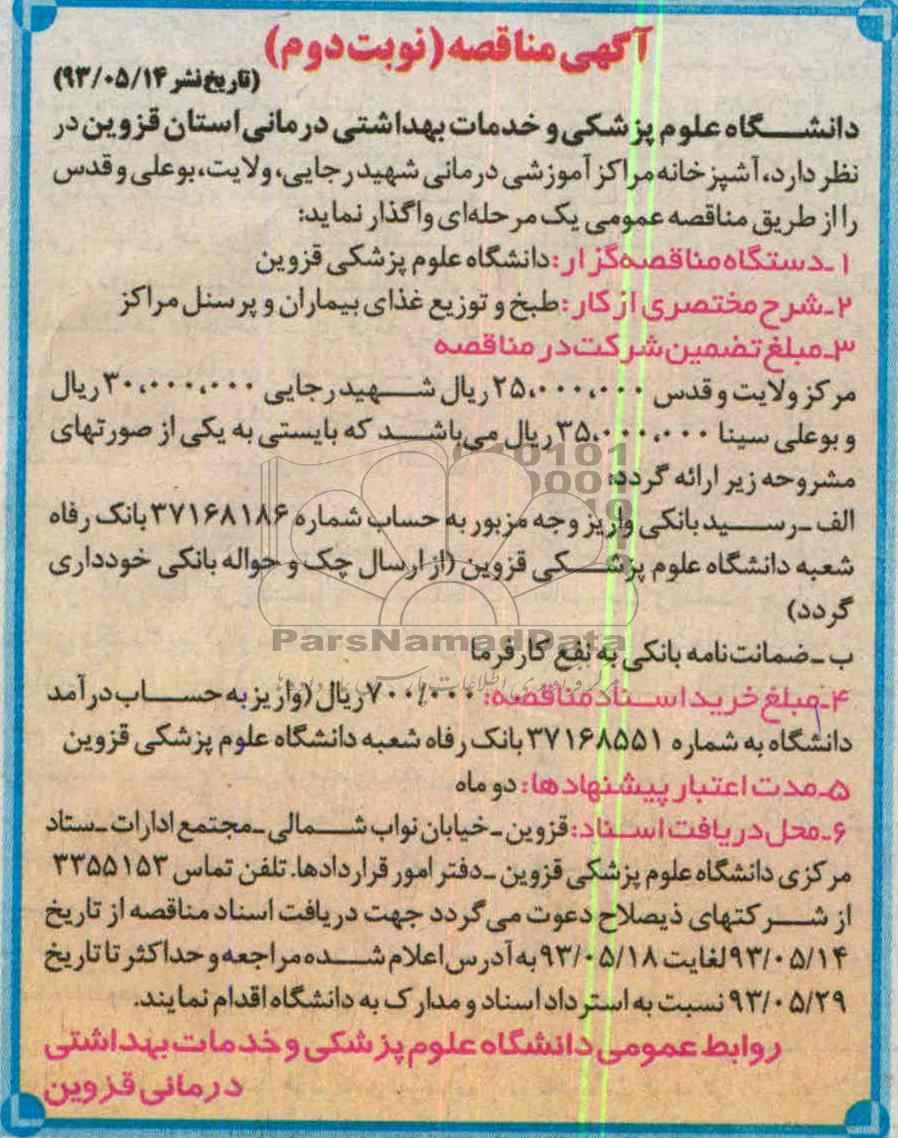 آگهی مناقصه (نوبت دوم)
(تاریخ نشر ۹۳/۰۵/۱۴)
دانشگاه علوم پزشکی و خدمات بهداشتی درمانی استان قزوین در
نظر دارد، آشپزخانه مراکز آموزشی درمانی شهید رجایی، ولایت، بوعلی و قدس
را از طریق مناقصه عمومی یک مرحله‌ای واگذار نماید:
۱ـ دستگاه مناقصه‌گزار: دانشگاه علوم پزشکی قزوین
۲ـ شرح مختصری از کار: طبخ و توزیع غذای بیماران و پرسنل مراکز
۳ـ مبلغ تضمین شرکت در مناقصه
مرکز ولایت و قدس ۲۵،۰۰۰،۰۰۰ ریال شهید رجایی ۳۰،۰۰۰،۰۰۰ ریال
و بوعلی سینا ۳۵،۰۰۰،۰۰۰ ریال می‌باشد که بایستی به یکی از صورتهای
مشروحه زیر ارائه گردد:
الف ـ رسید بانکی واریز وجه مزبور به حساب شماره ۳۷۱۶۸۱۸۶ بانک رفاه
شعبه دانشگاه علوم پزشکی قزوین (از ارسال چک و حواله بانکی خودداری
گردد)
ParsNamadData
ب ـ ضمانت‌نامه بانکی به نفع کارفرما
۴ـ مبلغ خرید اسناد مناقصه: ۷۰۰/۰۰۰ ریال (واریز به حساب درآمد
دانشگاه به شماره ۳۷۱۶۸۵۵۱ بانک رفاه شعبه دانشگاه علوم پزشکی قزوین
۵ـ مدت اعتبار پیشنهادها: دو ماه
۶ـ محل دریافت اسناد: قزوین ـ خیابان نواب شمالی ـ مجتمع ادارات ـ ستاد
مرکزی دانشگاه علوم پزشکی قزوین ـ دفتر امور قراردادها. تلفن تماس ۳۳۵۵۱۵۳
از شرکتهای ذیصلاح دعوت می‌گردد جهت دریافت اسناد مناقصه از تاریخ
۹۳/۰۵/۱۴ لغایت ۹۳/۰۵/۱۸ به آدرس اعلام شده مراجعه و حداکثر تا تاریخ
۹۳/۰۵/۲۹ نسبت به استرداد اسناد و مدارک به دانشگاه اقدام نمایند.
روابط عمومی دانشگاه علوم پزشکی و خدمات بهداشتی
درمانی قزوین